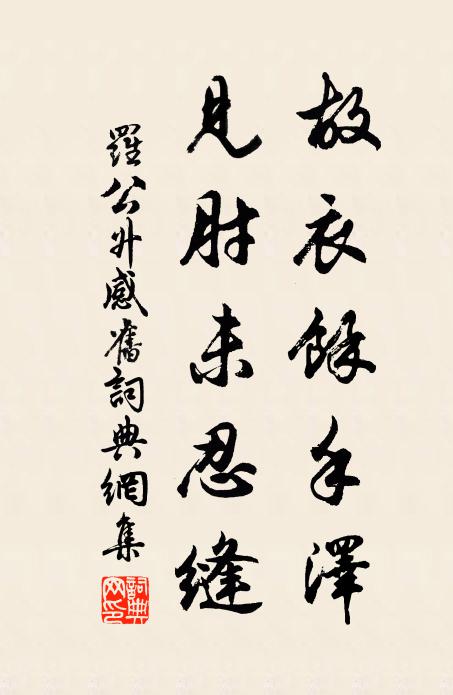 故衣餘手澤
見肘未忍縫
羅公升感舊詞典網集
詞典網印